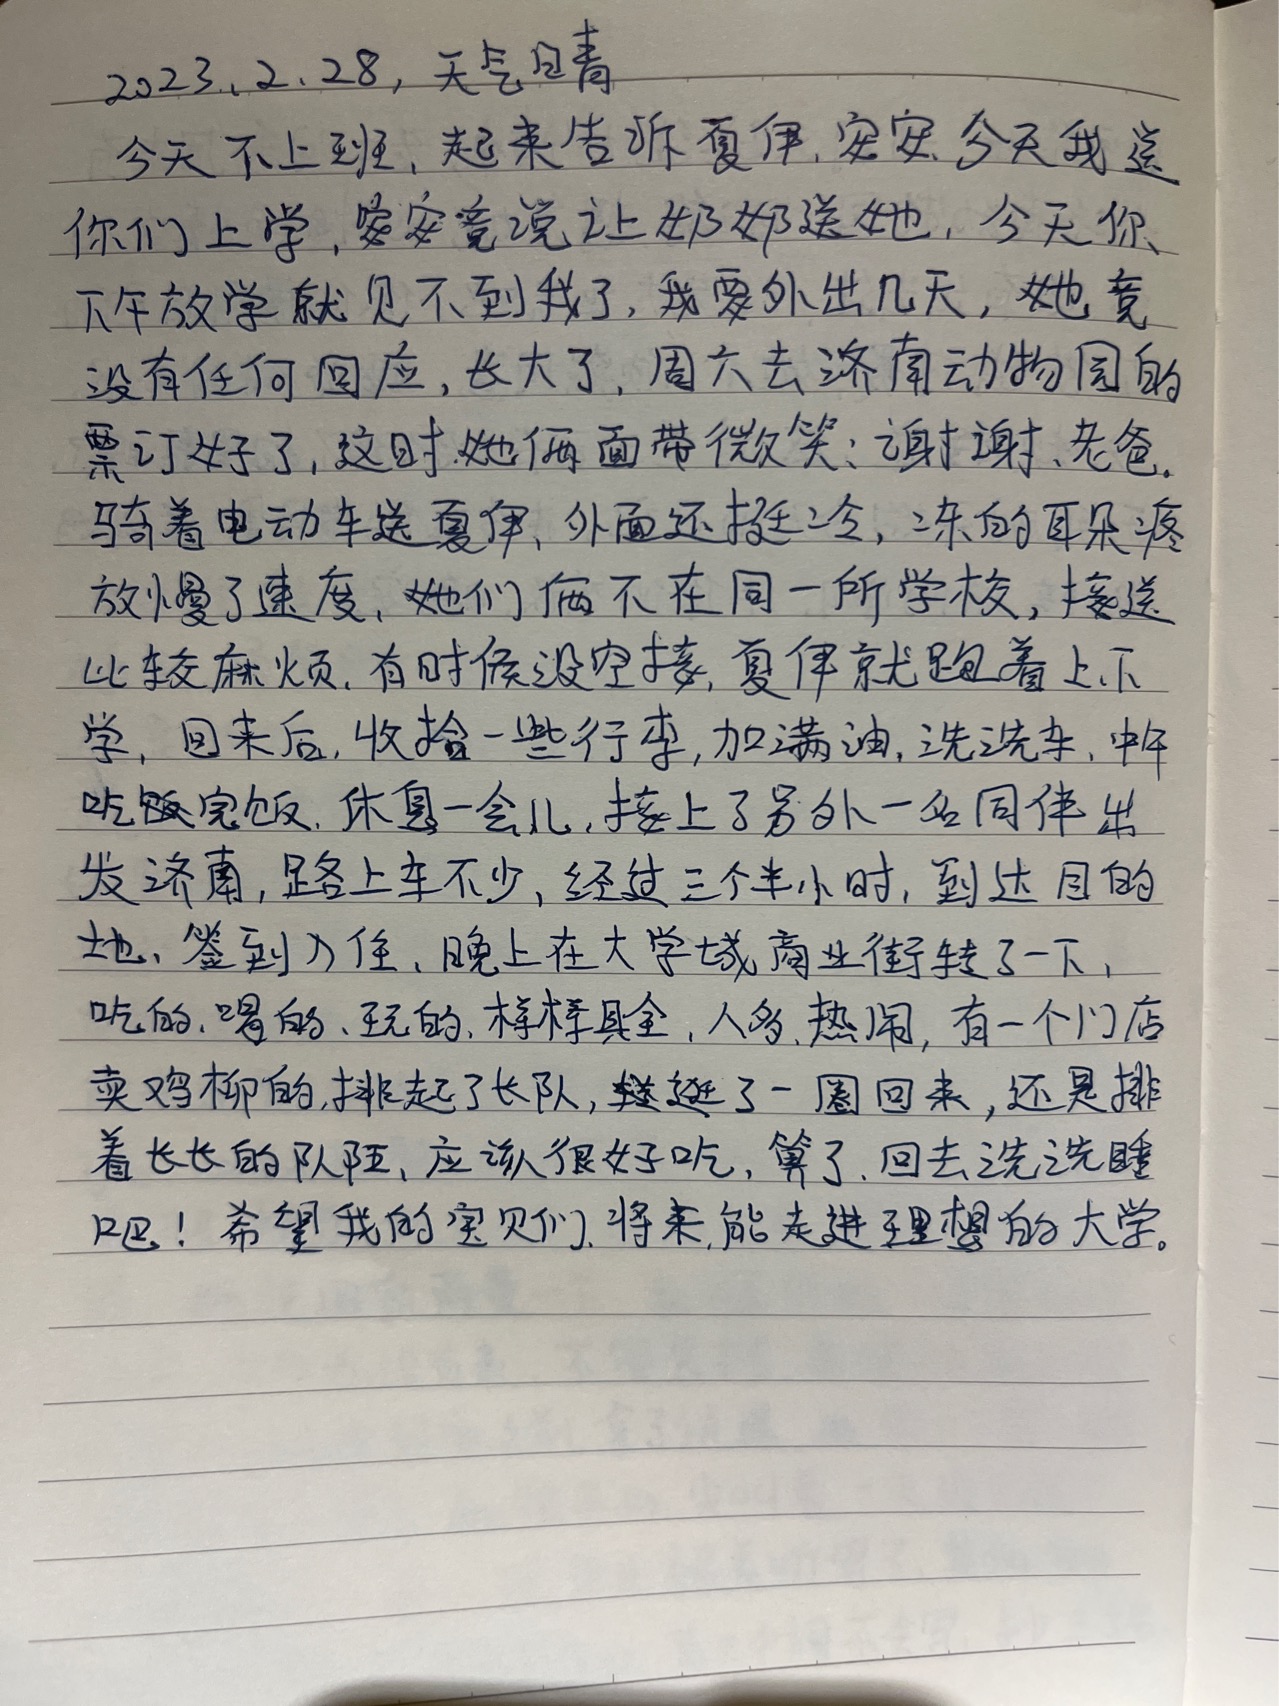 2023.2.28,天气晴
今天不上班,起来告诉夏伊、安安、今天我送
你们上学,安安竟说让奶奶送她,今天你
下午放学就见不到我了,我要外出几天,她竟
没有任何回应,长大了,周六去济南动物园的
票订好了,这时她俩面带微笑:谢谢、老爸。
骑着电动车送夏伊、外面还挺冷,冻的耳朵疼
放慢了速度,她们俩不在同一所学校,接送
比较麻烦,有时候没空接,夏伊就跑着上、下
学,回来后,收拾一些行李,加满油,洗洗车、中午
吃完饭、休息一会儿,接上了另外一名同伴出
发济南,路上车不少,经过三个半小时,到达目的
地、签到入住、晚上在大学城商业街转了一下,
吃的、喝的、玩的、样样具全,人多、热闹,有一个门店
卖鸡柳的,排起了长队,逛了一圈回来,还是排
着长长的队陌、应该很好吃,算了、回去洗洗睡
吧!希望我的宝贝们、将来,能走进理想的大学。